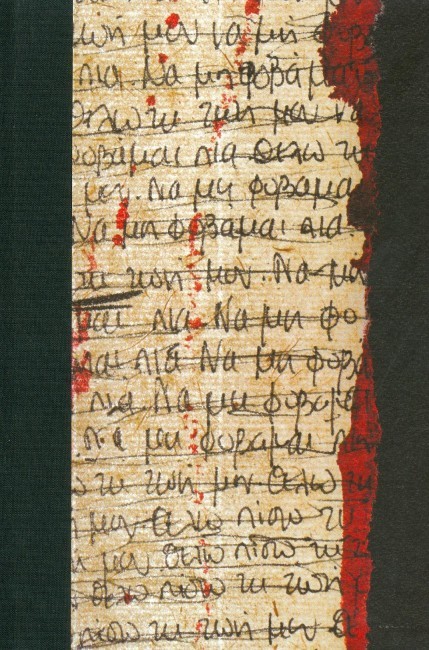 ζωη μου να μη φοβα
πια. Να μη φοβαμαι
Θελω τη ζωη μου να
φοβαμαι πια Θελω τη
μου. Να μη φοβαμαι
Να μη φοβαμαι πια.
τη ζωη μου. Να μη
μαι πια. Να μη φο
μαι πια Να μη φοβα
πια. Να μη φοβαμαι
μη φοβαμαι πια
τη ζωη μου Θελω τη
μου Θελω πισω τη
μου Θελω πισω τη
Θελω πισω τη ζωη
πισω τη ζωη μου Θε